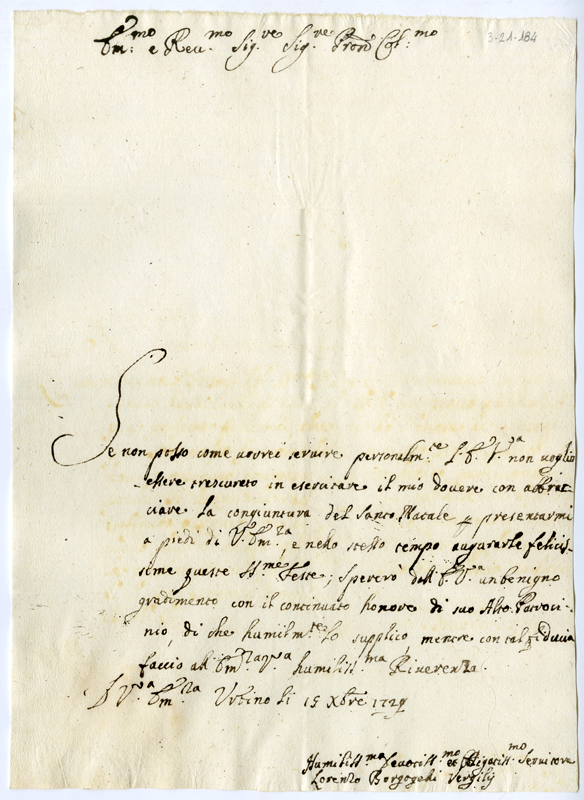 Em:mo e Reu.mo Sig.re Sig.re Pron Col:mo
3-21-184
Se non posso come vorrei servire personalm.te l'E. V.ra non voglio
essere trascurato in esercitare il mio douere con abbrac-
ciare la congiuntura del Santo Natale p presentarmi
a piedi di V. Em.za, e nello stesso tempo augurarle felicis-
sime queste SS.me Feste; spererò dall'E. V.a un benigno
gradimento con il continuato honore di suo Alto Patroci-
nio, di che humilm.te lo supplico, mentre con tal fiducia
faccio all' Em.za V.a humiliss.ma Riverenza.
D V.a Em.za Urbino li 15 Xbre 172
Humiliss.mo Devotiss.mo et Obligatiss.mo Servitore
Lorenzo Borgogelli Vergilij